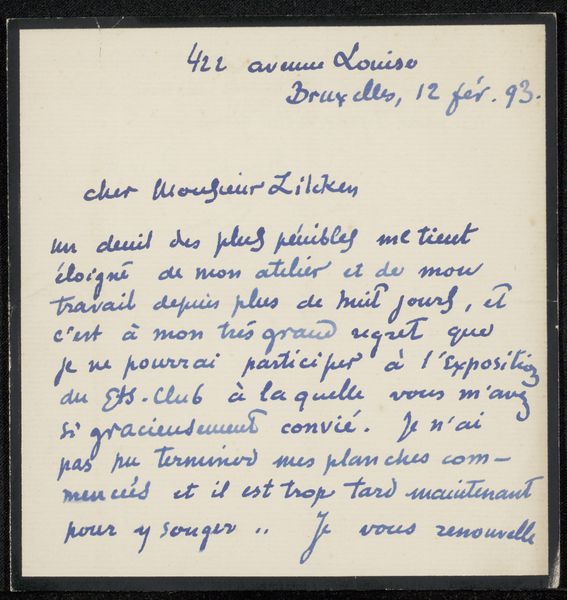 422 avenue Louise
Bruxelles, 12 fév. 93.
cher Monsieur Zilcken
un deuil des plus pénibles me tient
éloigné de mon atelier et de mon
travail depuis plus de huit jours, et
c'est à mon très grand regret que
je ne pourrai participer à l'Exposition
du Ets-Club à laquelle vous m'avez
si gracieusement convié. Je n'ai
pas pu terminer mes planches com-
mencées et il est trop tard maintenant
pour y songer .. Je vous renouvelle